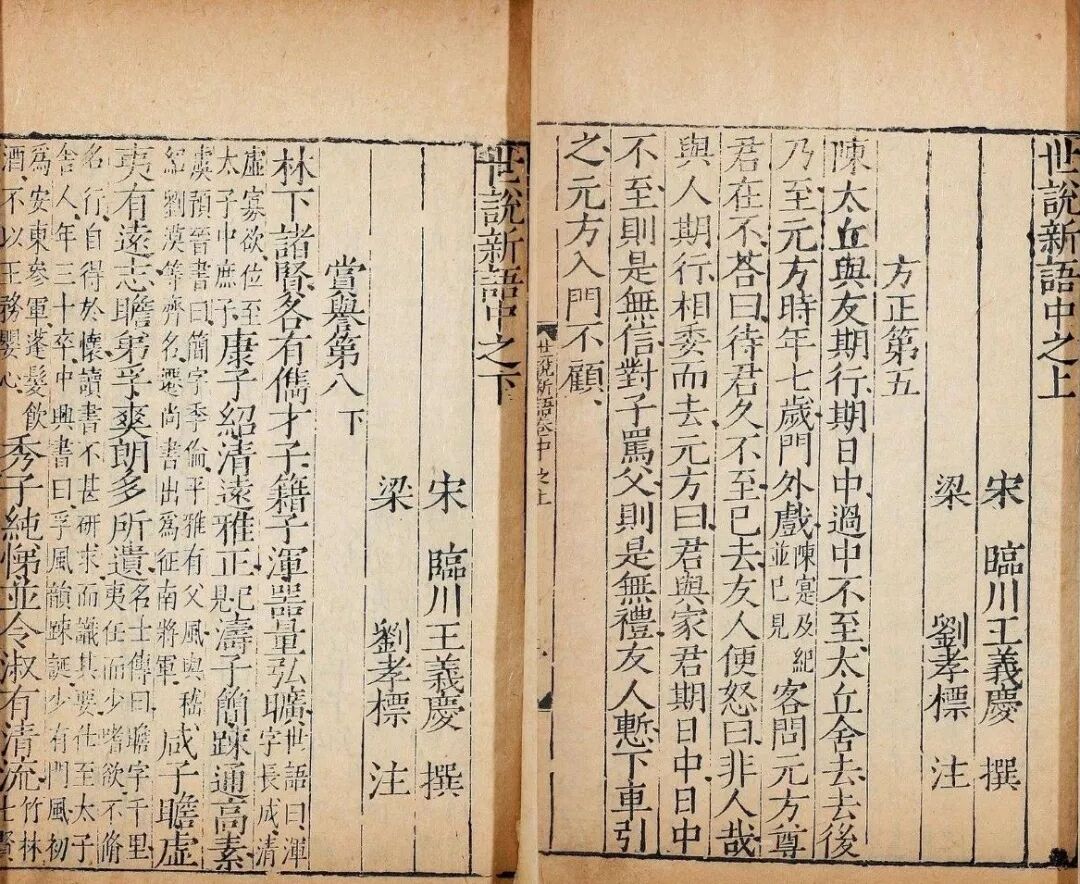 世說新語中之上
宋 臨川王義慶 撰
梁 劉孝標 注
方正第五
陳太丘與友期行期日中過中不至太丘舍去去後
乃至元方時年七歲門外戲陳寔及紀並已見客問元方尊
君在不荅曰待君久不至已去友人便怒曰非人哉
與人期行相委而去元方曰君與家君期日中日中
不至則是無信對子罵父則是無禮友人慙下車引
之元方入門不顧
世說新語卷中之上
世說新語中之下
宋 臨川王義慶 撰
梁 劉孝標 注
賞譽第八 下
林下諸賢各有儁才子籍子渾器量弘曠世語曰渾字長成清
虛寡欲位至太子中庶子康子紹清遠雅正已見濤子簡踈通高素
虞預晉書曰簡字季倫平雅有父風與嵇紹劉漠等齊名遷尚書出爲征南將軍咸子瞻虛
夷有遠志瞻弟孚爽朗多所遺名士傳曰瞻字千里夷任而少嗜欲不脩
名行自得於懷讀書不甚研求而識其要仕至太子舍人年三十卒中興書曰孚風韻踈誕少有門風初
爲安東參軍蓬髮飲酒不以王務嬰心秀子純悌並令淑有清流竹林七賢